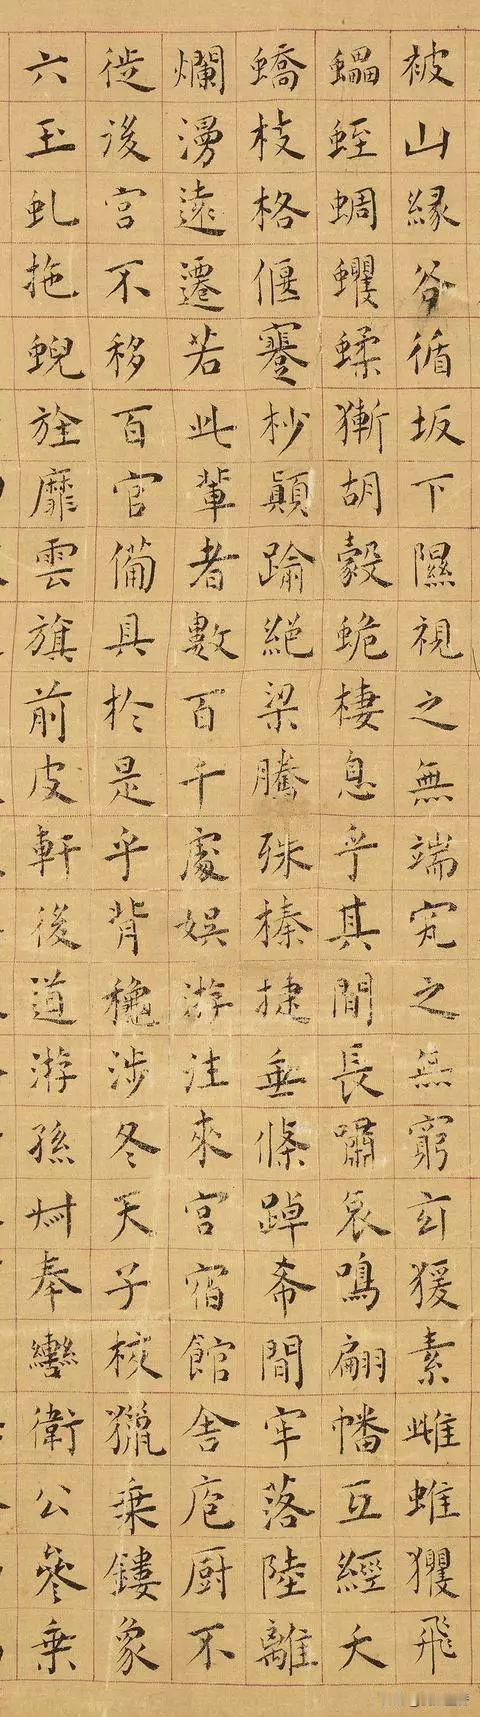 被山縁谷循坂下隰視之無端究之無窮玄猨素雌蜼玃飛
蠝蛭蜩蠼蝚獑胡豰蛫棲息乎其間長嘯哀鳴翩幡互經夭
蟜枝格偃蹇杪顛踰絕梁騰殊榛捷垂條踔希間牢落陸離
爛漫遠遷若此輩者數百千處娛游往來宮宿館舍庖厨不
徙後宮不移百官備具於是乎背穐涉冬天子校獵乗鏤象
六玉虬拖蜺旌靡雲旗前皮軒後道游孫叔奉轡衛公參乗